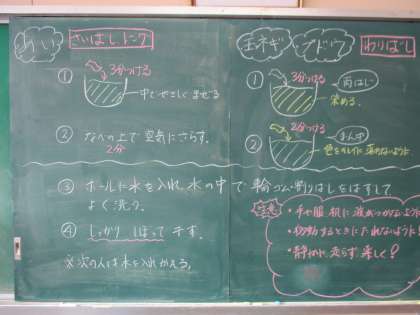 あい
さいばし、トング
① 3分つける
中でやさしくまぜる
② なべの上で空気にさらす。
2分
玉ネギ
ブドウ
わりばし
① 3分つける
両はじ
染める。
② 2分つける
まんず
③ ボールに水を入れ、水の中で輪ゴム・割りばしをはずして
よく洗う。
④ しっかりしぼって干す。
※次の人は水を入れかえる。
注意
・手や服、机に液がつかないように
・移動するときにたれないように!
・静かに 走らず 楽しく!